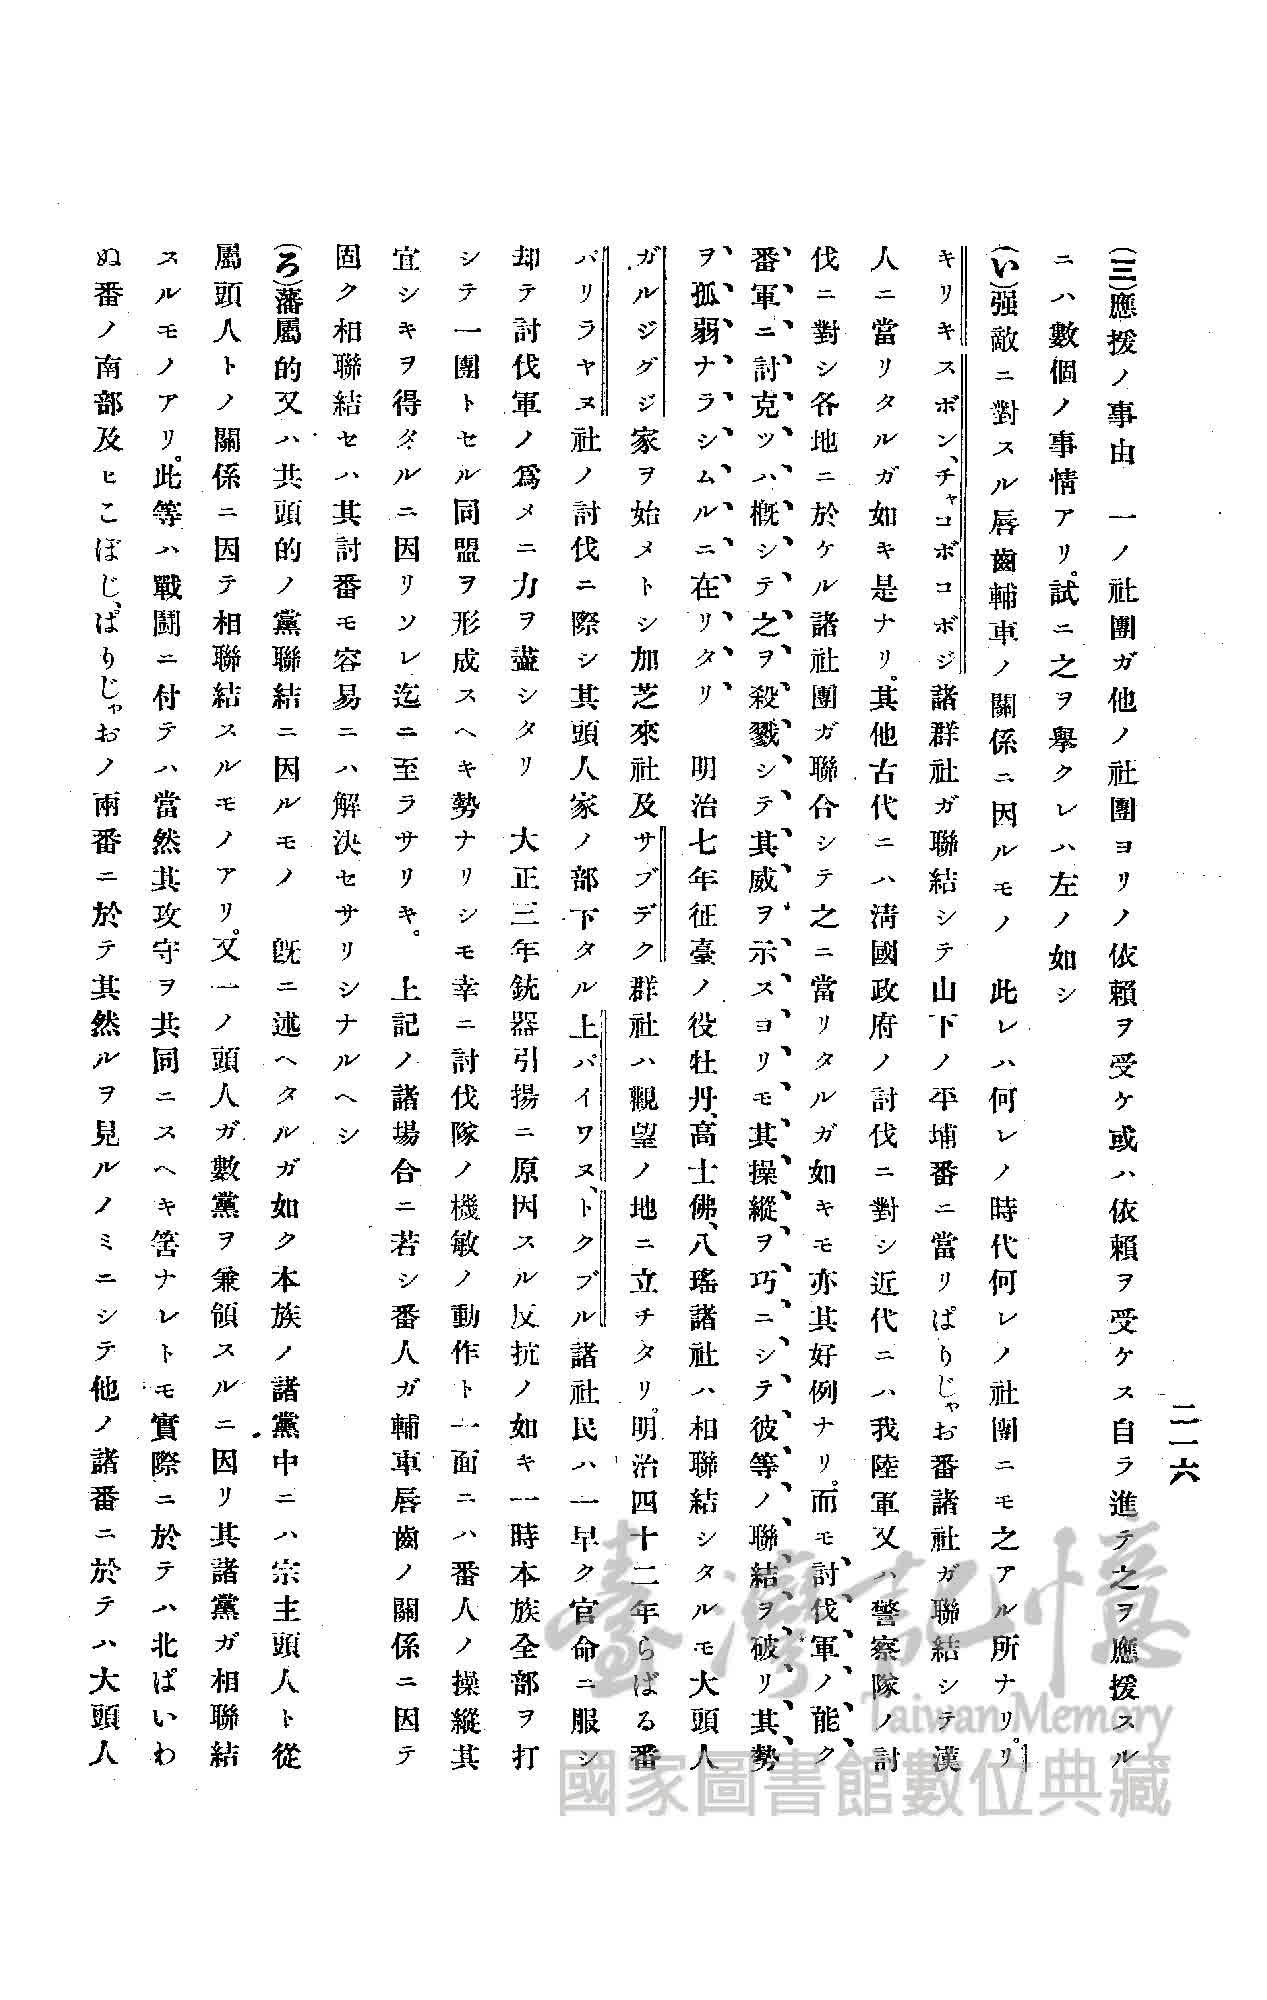 二一六
(三)應援ノ事由　一ノ社團ガ他ノ社團ヨリノ依賴ヲ受ケ或ハ依賴ヲ受ケス自ラ進テ之ヲ應援スル
ニハ數個ノ事情アリ。試ニ之ヲ擧クレハ左ノ如シ
(い)强敵ニ對スル唇齒輔車ノ關係ニ因ルモノ　此レハ何レノ時代何レノ社團ニモ之アル所ナリ。リ
キリキスボン、チャコボコボジ諸群社ガ聯結シテ山下ノ平埔番ニ當リぱりじゃお番諸社ガ聯結シテ漢
人ニ當リタルガ如キ是ナリ。其他古代ニハ淸國政府ノ討伐ニ對シ近代ニハ我陸軍又ハ警察隊ノ討
伐ニ對シ各地ニ於ケル諸社團ガ聯合シテ之ニ當リタルガ如キモ亦其好例ナリ。而モ討伐軍ノ能ク
番軍ニ討克ツハ槪シテ之ヲ殺戮シテ其威ヲ示スヨリモ其操縱ヲ巧ニシテ彼等ノ聯結ヲ破リ其勢
ヲ孤弱ナラシムルニ在リタリ　明治七年征臺ノ役牡丹、高士佛、八瑤諸社ハ相聯結シタルモ大頭人
ガルジグジ家ヲ始メトシ加芝來社及サブデク群社ハ觀望ノ地ニ立チタリ。明治四十二年らばる番
パリラヤヌ社ノ討伐ニ際シ其頭人家ノ部下タル上パイワヌ、トクブル諸社民ハ一早ク官命ニ服シ
却テ討伐軍ノ爲メニ力ヲ盡シタリ　大正三年銃器引揚ニ原因スル反抗ノ如キ一時本族全部ヲ打
シテ一團トセル同盟ヲ形成スヘキ勢ナリシモ幸ニ討伐隊ノ機敏ノ動作ト一面ニハ番人ノ操縱其
宜シキヲ得タルニ因リソレ迄ニ至ラサリキ。　上記ノ諸場合ニ若シ番人ガ輔車唇齒ノ關係ニ因テ
固ク相聯結セハ其討番モ容易ニハ解決セサリシナルヘシ
(ろ)藩屬的又ハ共頭的ノ黨聯結ニ因ルモノ　旣ニ述ヘタルガ如ク本族ノ諸黨中ニハ宗主頭人ト從
屬頭人トノ關係ニ因テ相聯結スルモノアリ。又一ノ頭人ガ數黨ヲ兼領スルニ因リ其諸黨ガ相聯結
スルモノアリ。此等ハ戰鬪ニ付テハ當然其攻守ヲ共同ニスヘキ筈ナレトモ實際ニ於テハ北ぱいわ
ぬ番ノ南部及ヒこぼじ、ぱりじゃおノ兩番ニ於テ其然ルヲ見ルノミニシテ他ノ諸番ニ於テハ大頭人
臺灣記憶
Taiwan Memory
國家圖書館數位典藏